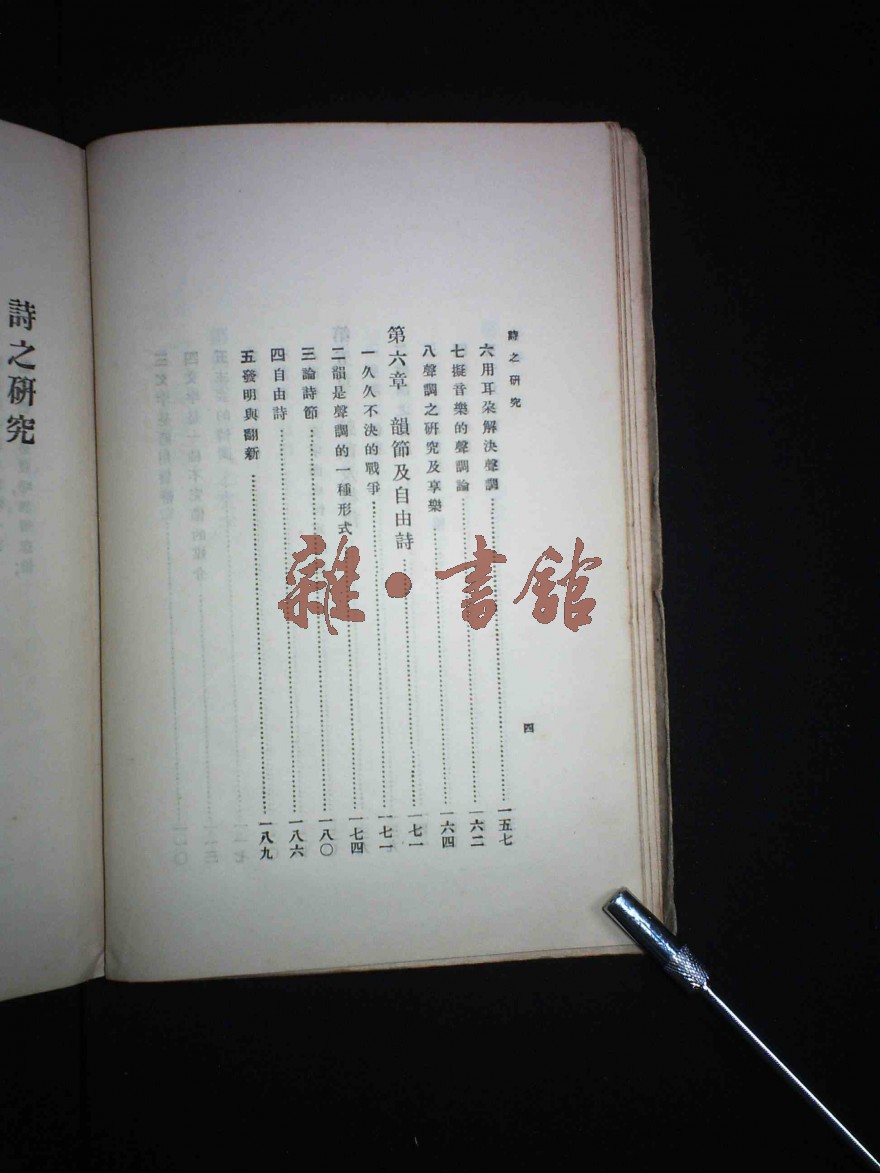 詩之研究
四
六用耳朵解決聲調……一五七
七擬音樂的聲調論……一六二
八聲調之研究及享樂……一六四
第六章 韻節及自由詩……一七一
一久久不決的戰爭……一七一
二韻是聲調的一種形式……一七四
三論詩節……一八〇
四自由詩……一八六
五發明與翻新……一八九
詩之研究
雜·書館